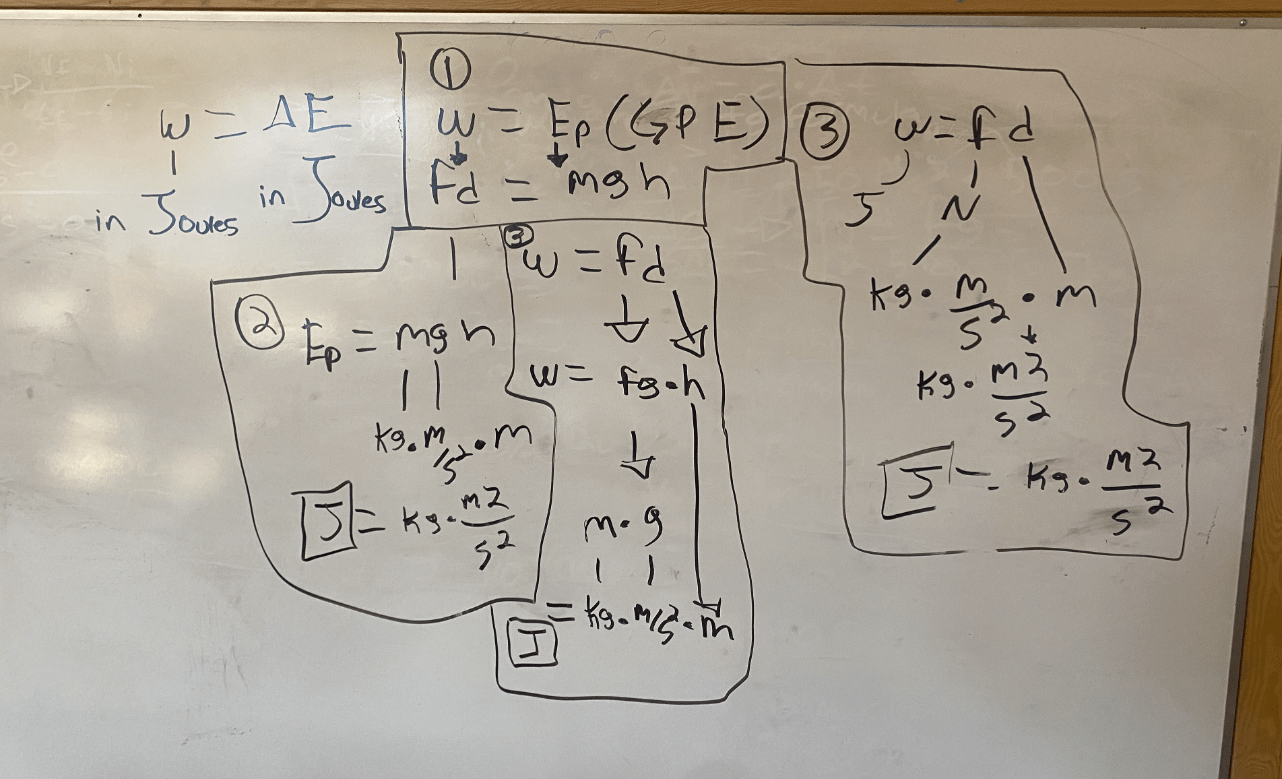 w = ΔE
in Joules in Joules
①
w = Ep (GPE)
Fd = mgh
②
Ep = mgh
kg. m/s² • m
J = kg • m2/s²
③
w = fd
w = fg • h
m • g
= kg • m/s² • m
J
③ w = f d
J N
kg • m/s² • m
kg • m2/s²
J = kg • m2/s²